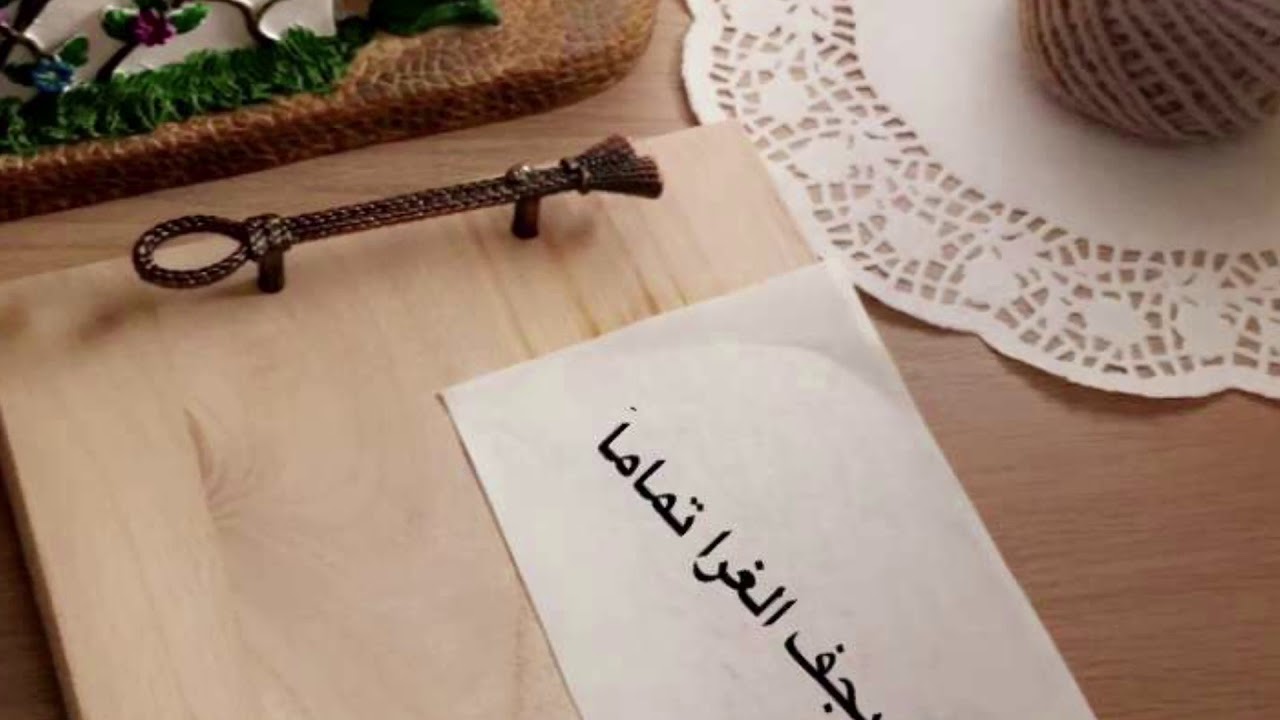 يجف الغرا تماماً